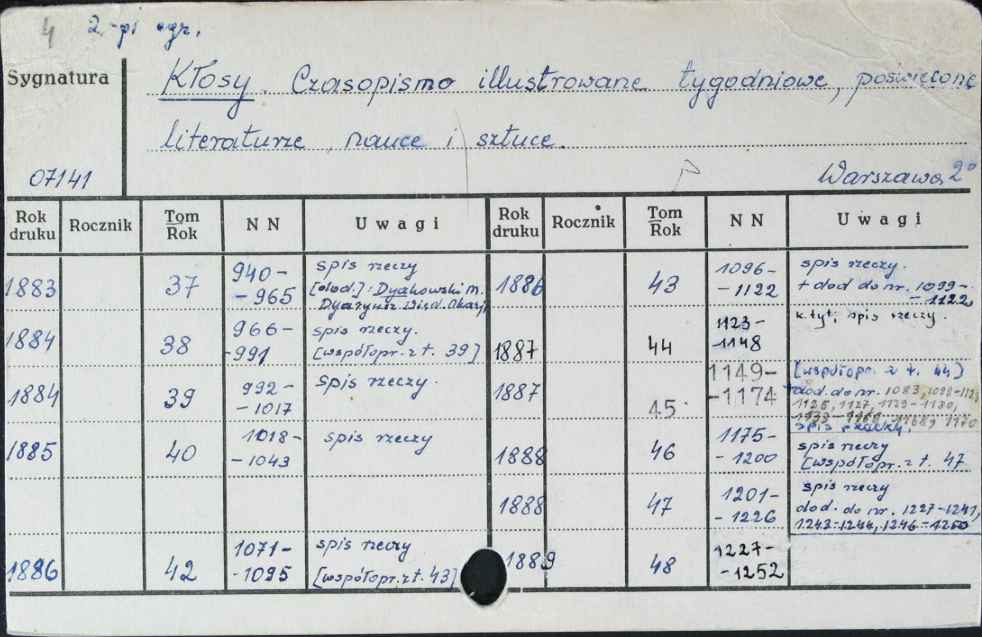 4 2-pi egz.
Sygnatura
Kłosy. Czasopismo illustrowane tygodniowe, poświęcone
literaturze, nauce i sztuce.
07141
Warszawa 2°
Rok druku Rocznik Tom Rok NN Uwagi Rok druku Rocznik Tom Rok NN Uwagi
1883 37 940-
-965 spis rzeczy
[dod.]: Dyakowski M.
Dyaryusz
1884 38 966-
-991 spis rzeczy.
[współopr. z t. 39]
1884 39 992-
-1017 spis rzeczy.
1885 40 1018-
-1043 spis rzeczy
1886 42 1071-
-1095 spis rzeczy
[współopr. z t. 43]
1886 43 1096-
-1122 spis rzeczy.
+ dod do nr. 1099-
-1122
1887 44 1123-
-1148 k.tyt, spis rzeczy.
1887 45 1149-
-1174 [współopr. z t. 44]
dod. do nr. 1083, 1098-
1126, 1127, 1129-1130,
spis rzeczy.
1888 46 1175-
-1200 spis rzeczy
[współopr. z t. 47
1888 47 1201-
-1226 spis rzeczy
dod. do nr. 1227-1241,
1243-1244, 1246-1250
1889 48 1227-
-1252